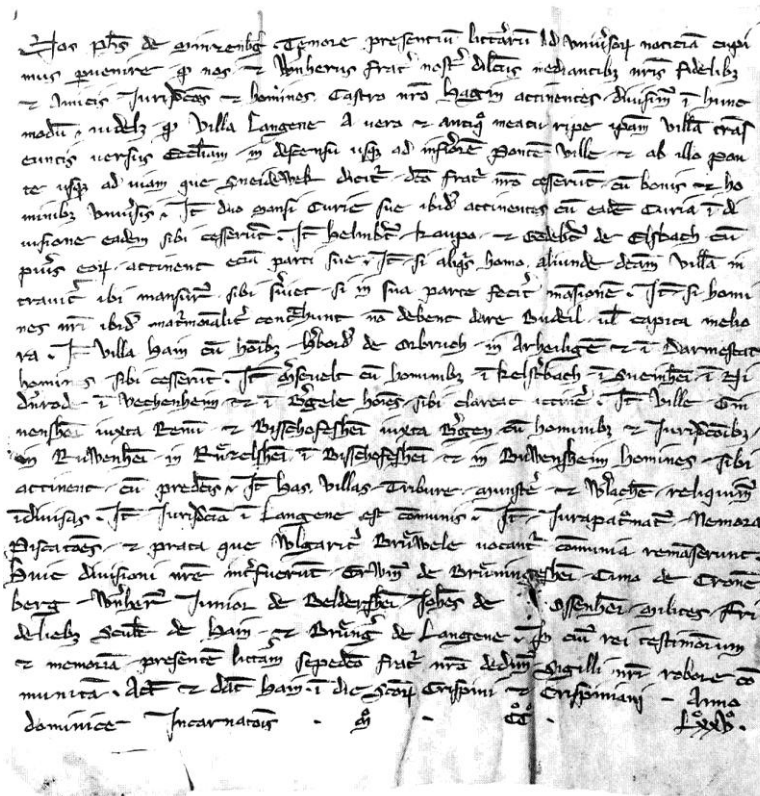 Nos phs de Minzenbg Tenore presentiū littarū ad vniusoꝝ noticiā cupi
mus puenire ꝙ nos ⁊ Wnherus frat nest dilctus mediantibꝫ nris fidelibꝫ
⁊ Amicis Jurisdcōes ⁊ homines Castro nrō Hagin attinentes diuisim ī hunc
modū ꝙ villa Langene a vero ⁊ antiqͦ meatu ripe ipam villā trās
euntis uersus Ecclam in descensu usqꝫ ad inferiorē Pontē ville ⁊ ab illo pon
te usqꝫ ad uiam que Sneidewek dicit dcō frat nrō cesserūt cū bonis ⁊ ho
minibꝫ vniusis Jt duo mansi Curie sue ibid attinentes cū eadē Curia ī di
uisione eadem sibi cesserūt Jt helmbct kaupo ⁊ Gedebct de Elsbach cū
puis eoꝝ attinent eciā parti sue Jt si aliqͥs homo aliunde dcām villā in
trauit ibi mansur sibi suiet si in sua parte fecit māsionē Jt si homi
nes nri ibid matmonialit contͣhunt nō debent dare Buteil ul capita melio
ra Jt villa Hain cū hōibꝫ hbord de Orbruch in Arheiligē ⁊ ī Darmestat
homines sibi cesserūt Jt Msevelt cū hominibꝫ ī kelstbach ī Sueinhei ī Ri
durode ī Vechenheim ⁊ ī Bgele hoies sibi Jt ville Gin
nenshei iuxta Renū ⁊ Bisschofeshei iuxta Bgen cū hominibꝫ ⁊ Jurisdcōibꝫ
in Ruwenhei in Ruzelshei ī Bisschofeshei ⁊ in Buwensheim homines sibi
attinent cū predcis Jt has villas Tribure Munste ⁊ Wlachē reliquim
īdiuisas Jt Jurisdcio ī Langene est cōmunis Jt Jurapatonat Nemora
Piscatōes ⁊ prata que wlgarit Bruwele uocant cōmunia remāserunt
Huic diuisioni nre intfuerūt Erwin de Bruningeshei Cuno de Cronē
berg Wnher Junior de Beldershei Johes de Ossenhei milites Fri
deliebꝫ Scult de Hain ⁊ Brung de Langene Jn cui rei testimonium
⁊ memoriā presentē littam sepedcō frat nrō dedim Sigilli nri robore cō
munitā Act ⁊ dat Hain ī die Scoꝝ Crispini ⁊ Crispiniani Anno
dominice Jncarnatōis M CC LXXV